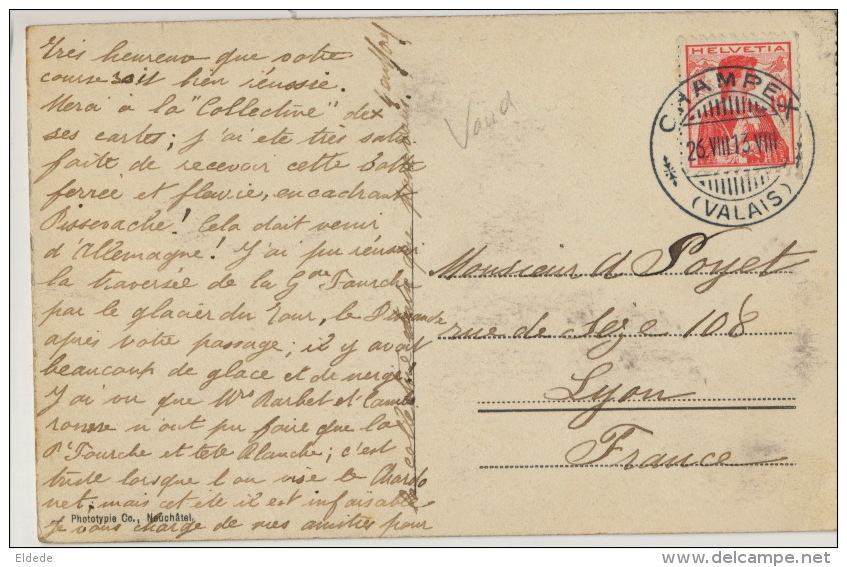 Très heureux que votre
course soit bien réussie.
Merci à la "Collective" de
ses cartes; j'ai été très satis
faite de recevoir cette botte
ferrée et fleurie, encadrant
Pissevache! Cela doit venir
d'Allemagne! J'ai pu réussir
la traversée de la Gde Fourche
par le glacier du Tour, le Dimanche
après votre passage; il y avait
beaucoup de glace et de neige.
J'ai vu que Mrs Barbet et
n'ont pu faire que la
Pte Fourche et tête Blanche; c'est
triste lorsque l'on vise le Chardo
net, mais cet été il est infaisable
Je vous charge de mes amitiés pour
la collective
Vaud
HELVETIA
10
CHAMPEX
26.VIII 13.VIII
(VALAIS)
Monsieur A Poyet
rue de Sèze 108
Lyon
France
Phototypie Co., Neuchâtel.
Eldede
www.delcampe.net